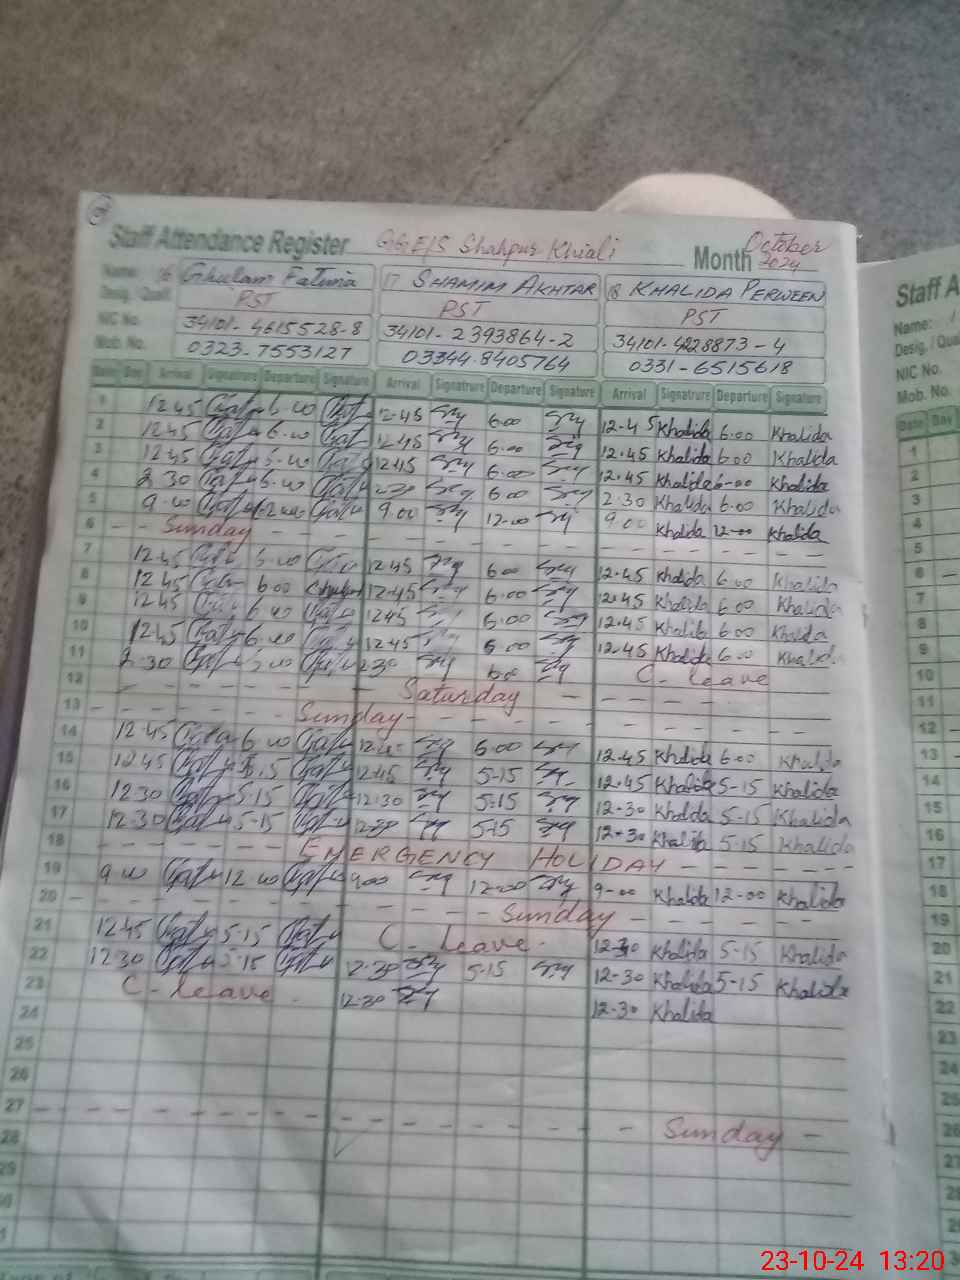 Staff Attendance Register G.G.E/S Shahpur Khiali Month October 2024
Name: 16 Ghulam Fatima 17 SHAMIM AKHTAR 18 KHALIDA PERWEEN
Desig. / Quali. PST PST PST
NIC No. 34101-4615528-8 34101-2393864-2 34101-4228873-4
Mob. No. 0323-7553127 03344 8405764 0331-6515618
Date Day Arrival Signature Departure Signature Arrival Signatrure Departure Signature Arrival Signatrure Departure Signature
1 12 45 6.00 12-45 6.00 12-45 Khalida 6.00 Khalida
2 12 45 6.00 12-45 6.00 12.45 Khalida 6.00 Khalida
3 12 45 12-45 6.00 12.45 Khalida 6-00 Khalida
4 2 30 2-30 6.00 2.30 Khalida 6.00 Khalida
5 9.00 9.00 12-00 9.00 Khalida 12-00 Khalida
6 - - Sunday - - - - - - - - -
7 12.45 12.45 6.00 12.45 Khalida 6.00 Khalida
8 12 45 6.00 12-45 6.00 12.45 Khalida 6.00 Khalida
9 12 45 6.00 12 45 6.00 12.45 Khalida 6.00 Khalida
10 12.45 6.00 12.45 6.00 12.45 Khalida 6.00 Khalida
11 2.30 2.30 6.00 C-leave
12 - - - - Saturday - - - - -
13 - - - - - Sunday - - - - - -
14 12.45 6.00 12.45 6.00 12.45 Khalida 6.00 Khalida
15 12.45 5.15 12-45 5-15 12.45 Khalida 5-15 Khalida
16 12.30 5.15 12.30 5-15 12-30 Khalida 5-15 Khalida
17 12.30 5-15 12.30 5-15 12-30 Khalida 5-15 Khalida
18 - - - - - EMERGENCY HOLIDAY - - - -
19 9.00 12.00 9.00 12-00 9-00 Khalida 12-00 Khalida
20 - - - - - - - Sunday - - - -
21 12 45 5-15 C-leave 12-30 Khalida 5-15 Khalida
22 12.30 5-15 12-30 5-15 12-30 Khalida 5-15 Khalida
23 C-leave 12.30 12-30 Khalida
24
25
26
27 - - - - - - - - - - Sunday -
28
29
Staff A
Name:
Desig. / Qua
NIC No.
Mob. No.
Date Day
1
2
3
4
5
6
7
8
9
10
11
12
13
14
15
16
17
18
19
20
21
22
23
24
25
26
27
28
29
23-10-24 13:20